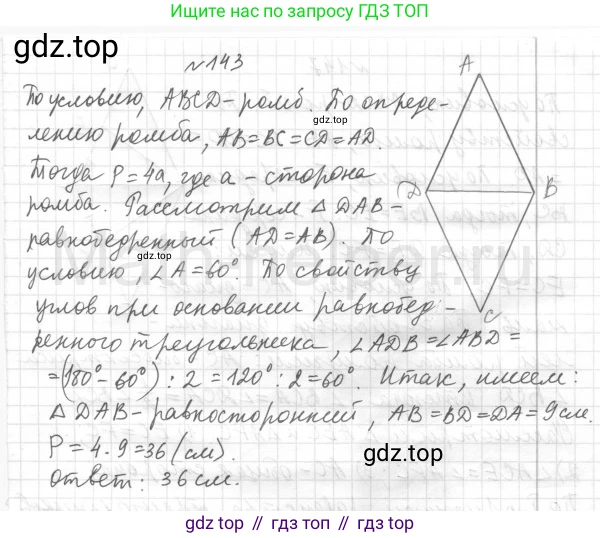 Ищите нас по запросу
ГДЗ ТОП
gdz.top
№143
По условию, ABCD - ромб. По опреде-
лению ромба, AB=BC=CD=AD.
gdz.top
Тогда P=4a, где a - сторона
ромба. Рассмотрим △ DAB -
равнобедренный (AD=AB). По
gdz.top
условию, ∠A=60°. По свойству
углов при основании равнобед-
ренного треугольника, ∠ADB=∠ABD=
=(180°-60°):2=120°:2=60°. Итак, имеем:
△ DAB - равносторонний, AB=BD=DA=9см.
P=4·9=36(см).
gdz.top
Ответ: 36 см.
A
D
B
C
gdz.top // гдз.топ // gdz.top // гдз.топ